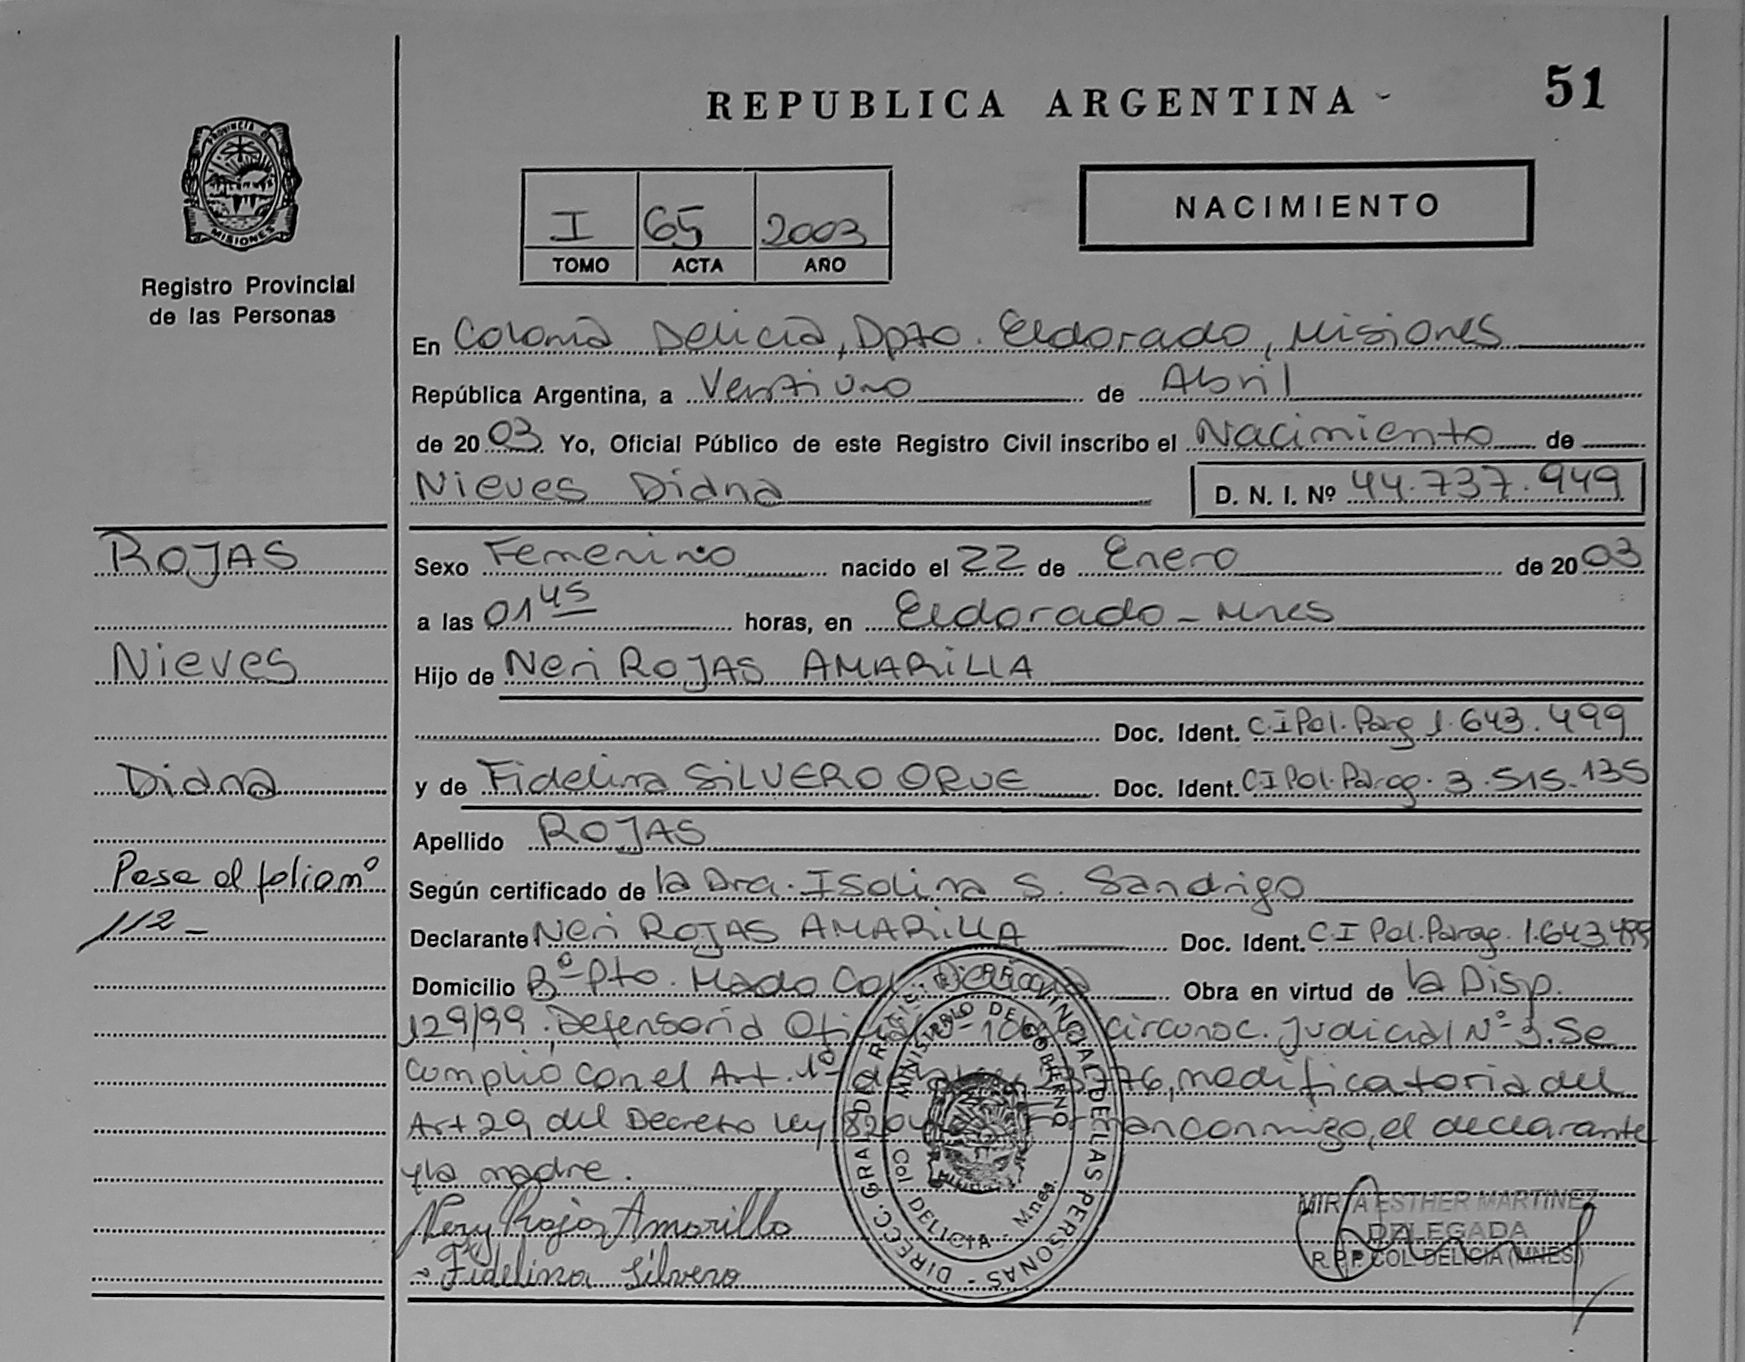 REPUBLICA ARGENTINA
51
PROVINCIA DE
MISIONES
Registro Provincial
de las Personas
I 65 2003
TOMO ACTA AÑO
NACIMIENTO
En Colonia Delicia, Dpto. Eldorado, Misiones
República Argentina, a Ventiuno de Abril
de 20 03 Yo, Oficial Público de este Registro Civil inscribo el Nacimiento de
Nieves Diana D. N. I. Nº 44.737.949
ROJAS
Nieves
Diana
Pase al folio nº
112-
Sexo Femenino nacido el 22 de Enero de 20 03
a las 01 45 horas, en Eldorado - Mnes
Hijo de Neri ROJAS AMARILLA
Doc. Ident. C.I Pol. Parg 1.643.499
y de Fidelina SILVERO ORUE Doc. Ident. C I Pol. Parag. 3.515.135
Apellido ROJAS
Según certificado de la Dra. Isolina S. Sandrigo
Declarante Neri ROJAS AMARILLA Doc. Ident. C I Pol. Parag. 1.643.499
Domicilio Bº Pto. Mado Col. Delicia Obra en virtud de la Disp.
129/99, Defensoria circunsc. Judicial Nº 3. Se
cumplió con el Art. 1º modificatoria del
Art 29 del Decreto Ley conmigo, el declarante
y la madre.
Nery Rojas Amarilla
Fidelina Silvero
DIRECC. GRAL. DEL REGIST. PROVINCIAL DE LAS PERSONAS
MINISTERIO DE GOBIERNO
Col DELICIA - Mnes.
MIRTA ESTHER MARTINEZ
DELEGADA
R.P.P. COL. DELICIA (MNES)